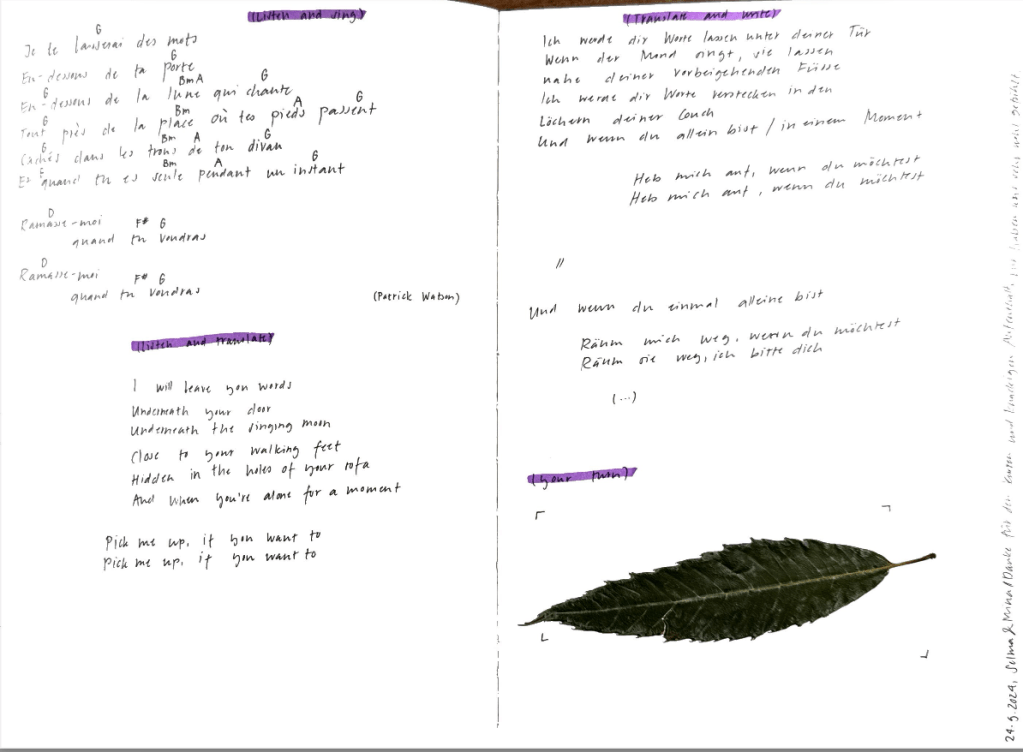 (Listen and sing)
G
Je te laisserai des mots
G
En-dessous de ta porte
G Bm A G
En-dessous de la lune qui chante
G Bm A G
Tout près de la place où tes pieds passent
G Bm A G
Cachés dans les trous de ton divan
G Bm A G
Et quand tu es seule pendant un instant
D
Ramasse-moi
F# G
quand tu voudras
D
Ramasse-moi
F# G
quand tu voudras
(Patrick Watson)
(Listen and translate)
I will leave you words
Underneath your door
Underneath the singing moon
Close to your walking feet
Hidden in the holes of your sofa
And when you're alone for a moment
Pick me up, if you want to
Pick me up, if you want to
(Translate and write)
Ich werde dir Worte lassen unter deiner Tür
Wenn der Mond singt, sie lassen
nahe deiner vorbeigehenden Füsse
Ich werde dir Worte verstecken in den
Löchern deiner Couch
Und wenn du allein bist / in einem Moment
Heb mich auf, wenn du möchtest
Heb mich auf, wenn du möchtest
//
Und wenn du einmal alleine bist
Räum mich weg, wenn du möchtest
Räum sie weg, ich bitte dich
(...)
(your turn)
24.9.2024, Selma & Mina / Danke für den kurzen und knackigen Aufenthalt, wir haben uns sehr wohl gefühlt